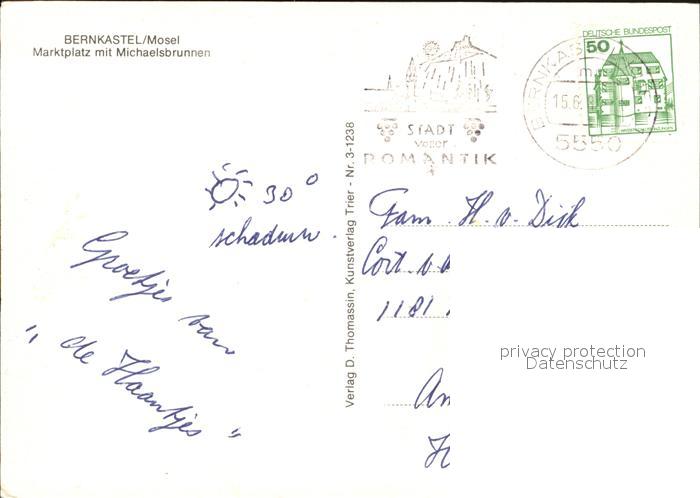 BERNKASTEL/Mosel
Marktplatz mit Michaelsbrunnen
DEUTSCHE BUNDESPOST
50
15.6.
5550
STADT
voller
ROMANTIK
30°
schaduw.
Groetjes van
" de Haantjes "
Verlag D. Thomassin, Kunstverlag Trier - Nr. 3-1238
Fam. H. v. Dick
Cort. v.
1181
privacy protection
Datenschutz